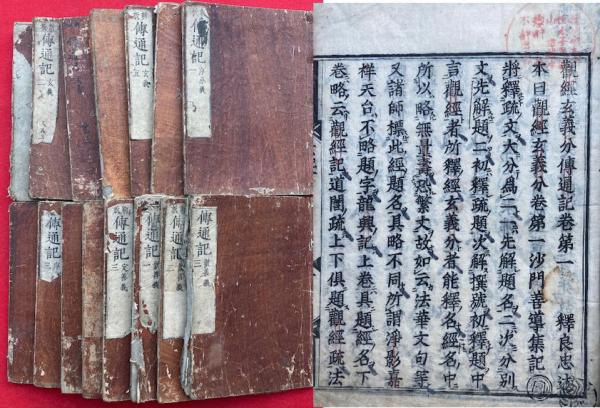 傳通記
玄義
傳通記
玄義
五
傳通記
序分義
一
傳通記
序
三
傳通記
定善義
三
傳通記
一
傳通記
三
傳通記
散善義
觀經玄義分傳通記卷第一
釋良忠述
本曰觀經玄義分卷第一沙門善導集記
將釋疏文大分爲二一先解題名二次分別
文先解題二初釋疏題次解撰號初釋題中
言觀經者所釋經玄義分者能釋名經名中
所以略無量壽恐繁文故如云法華文句等
又諸師標此經題名具略不同所謂淨影嘉
祥天台不略題字龍興記上卷具題經名下
卷略云觀經記道誾疏上下俱題觀經疏法